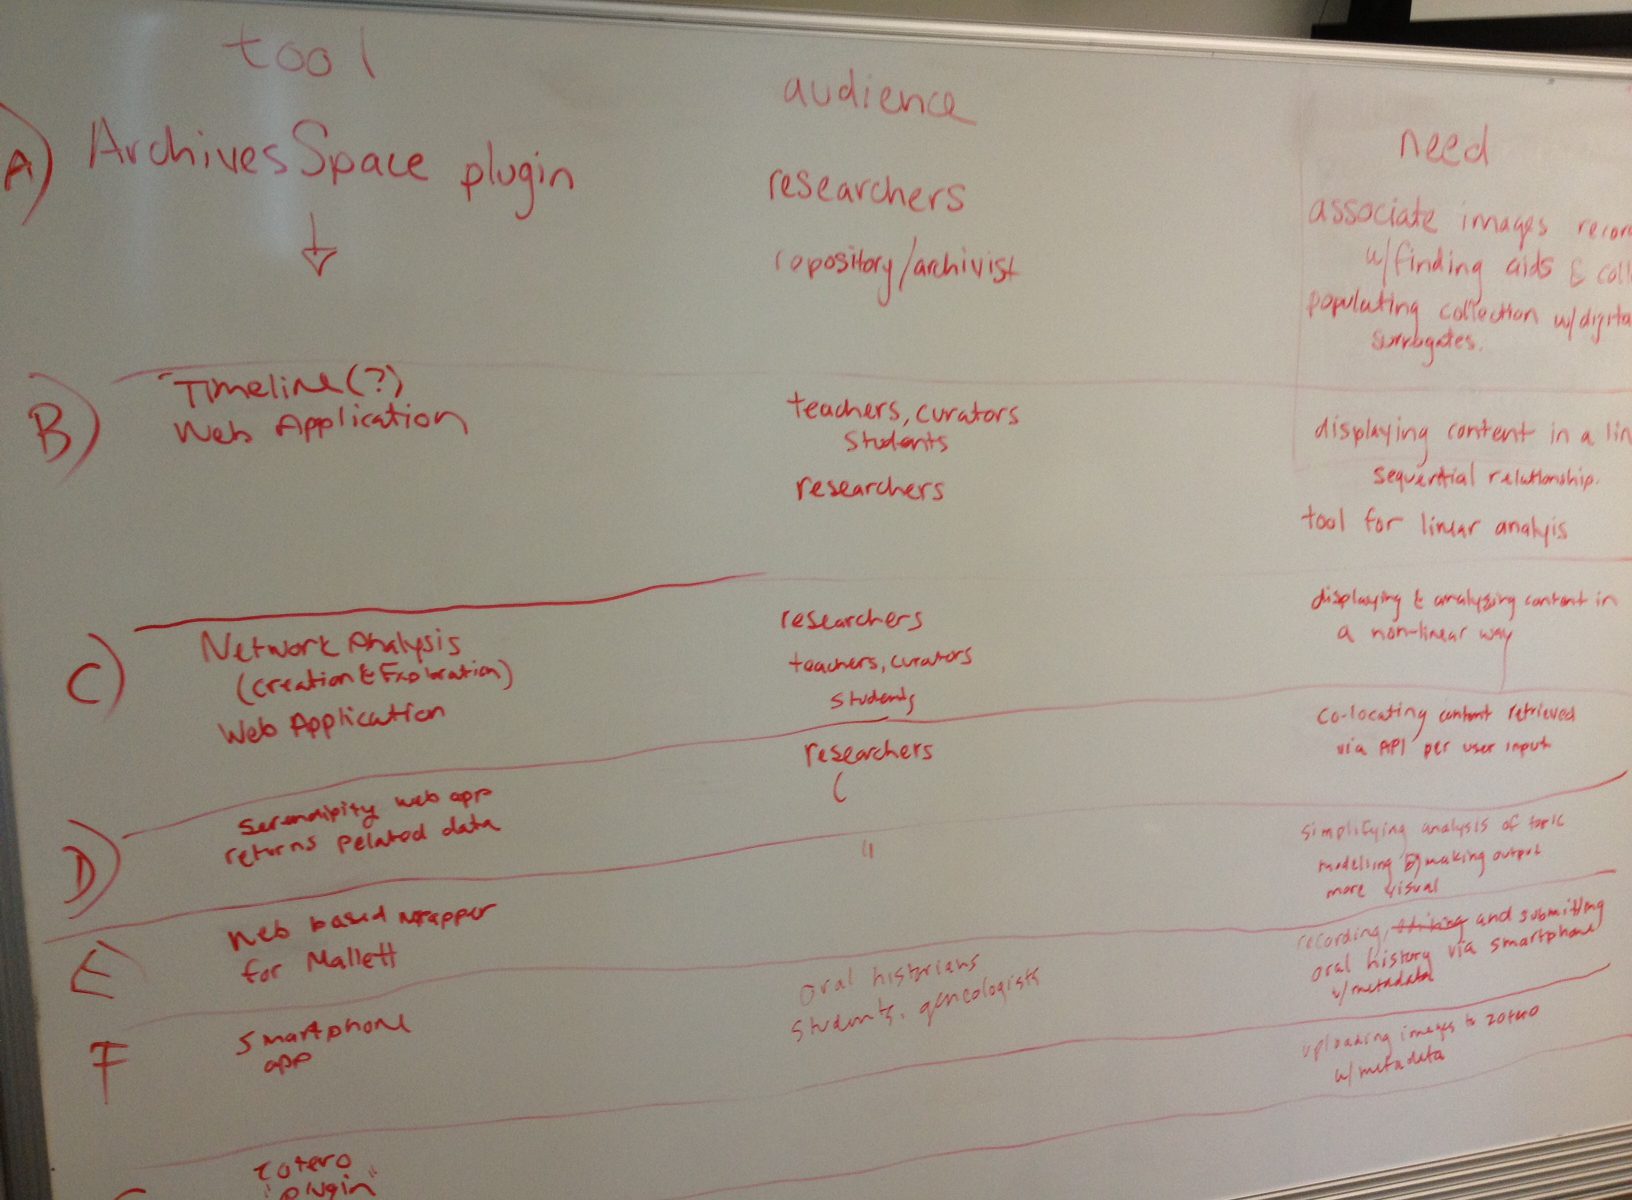 tool
audience
need
A) ArchivesSpace plugin
researchers
repository/archivist
associate images
w/finding aids &
populating collection
surrogates.
B) Timeline(?)
Web Application
teachers, curators
students
researchers
displaying content in a
sequential relationship.
tool for linear analyis
C) Network Analysis
(Creation & Exploration)
Web Application
researchers
teachers, curators
students
displaying & analyzing content in
a non-linear way
D) Serendipity web app
returns related data
researchers
co-locating content retrieved
via API per user input
E web based wrapper
for Mallett
"
simplifying analysis of topic
modelling by making output
more visual
F smartphone
app
oral historians
students, geneologists
recording, and submitting
oral history via smartphone
w/metadata
zotero
"plugin"
uploading images to zotero
w/metadata